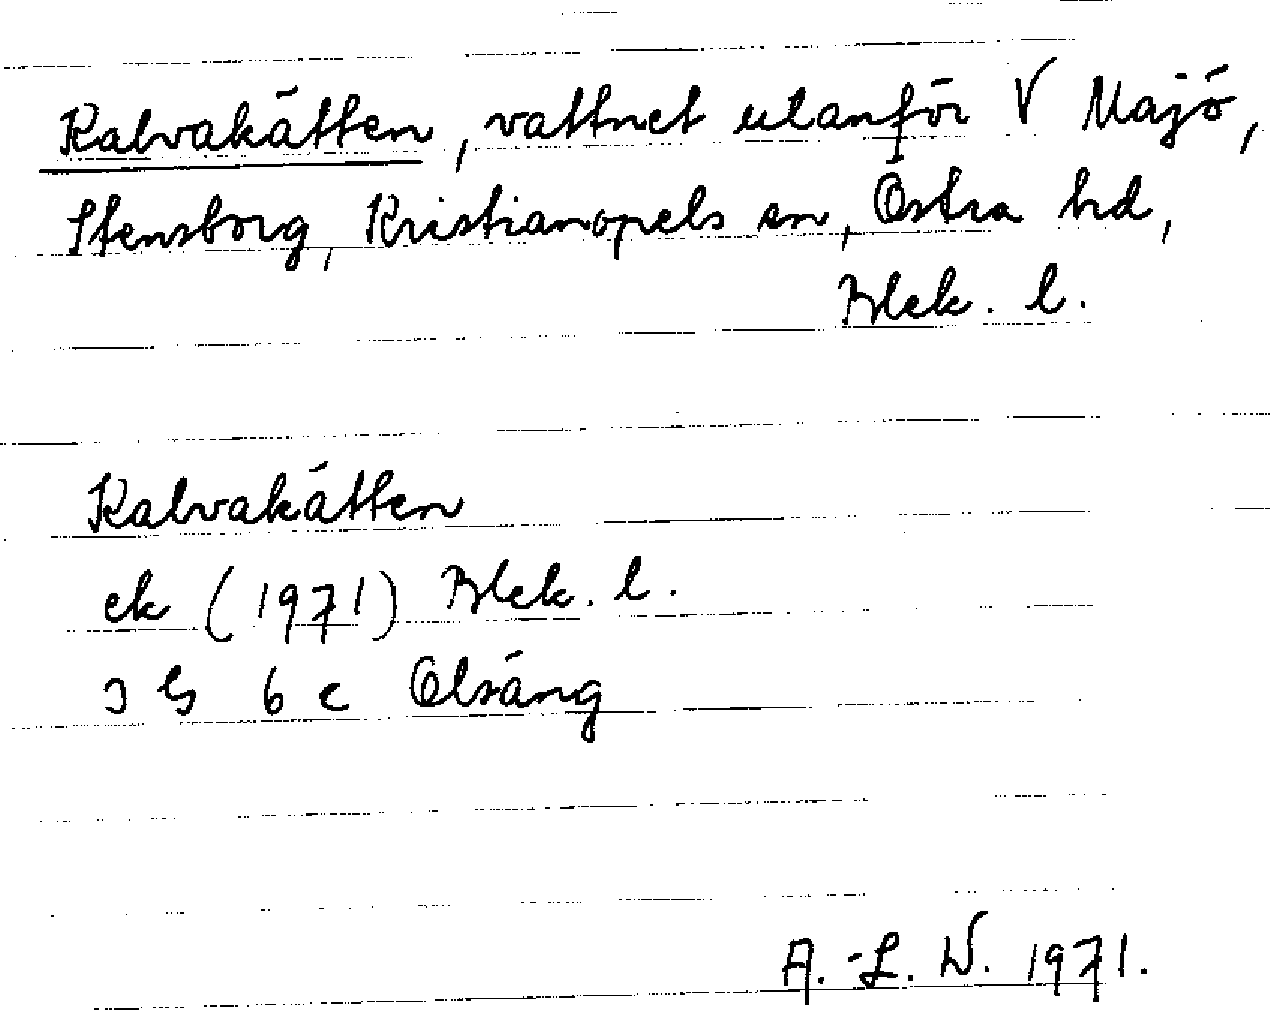 Kalvakätten, vattnet utanför V Majö,
Stensborg, Kristianopels sn, Östra hd,
Blek. l.
Kalvakätten
ek (1971) Blek. l.
3 G 6 c Olsäng
A.-L. W. 1971.